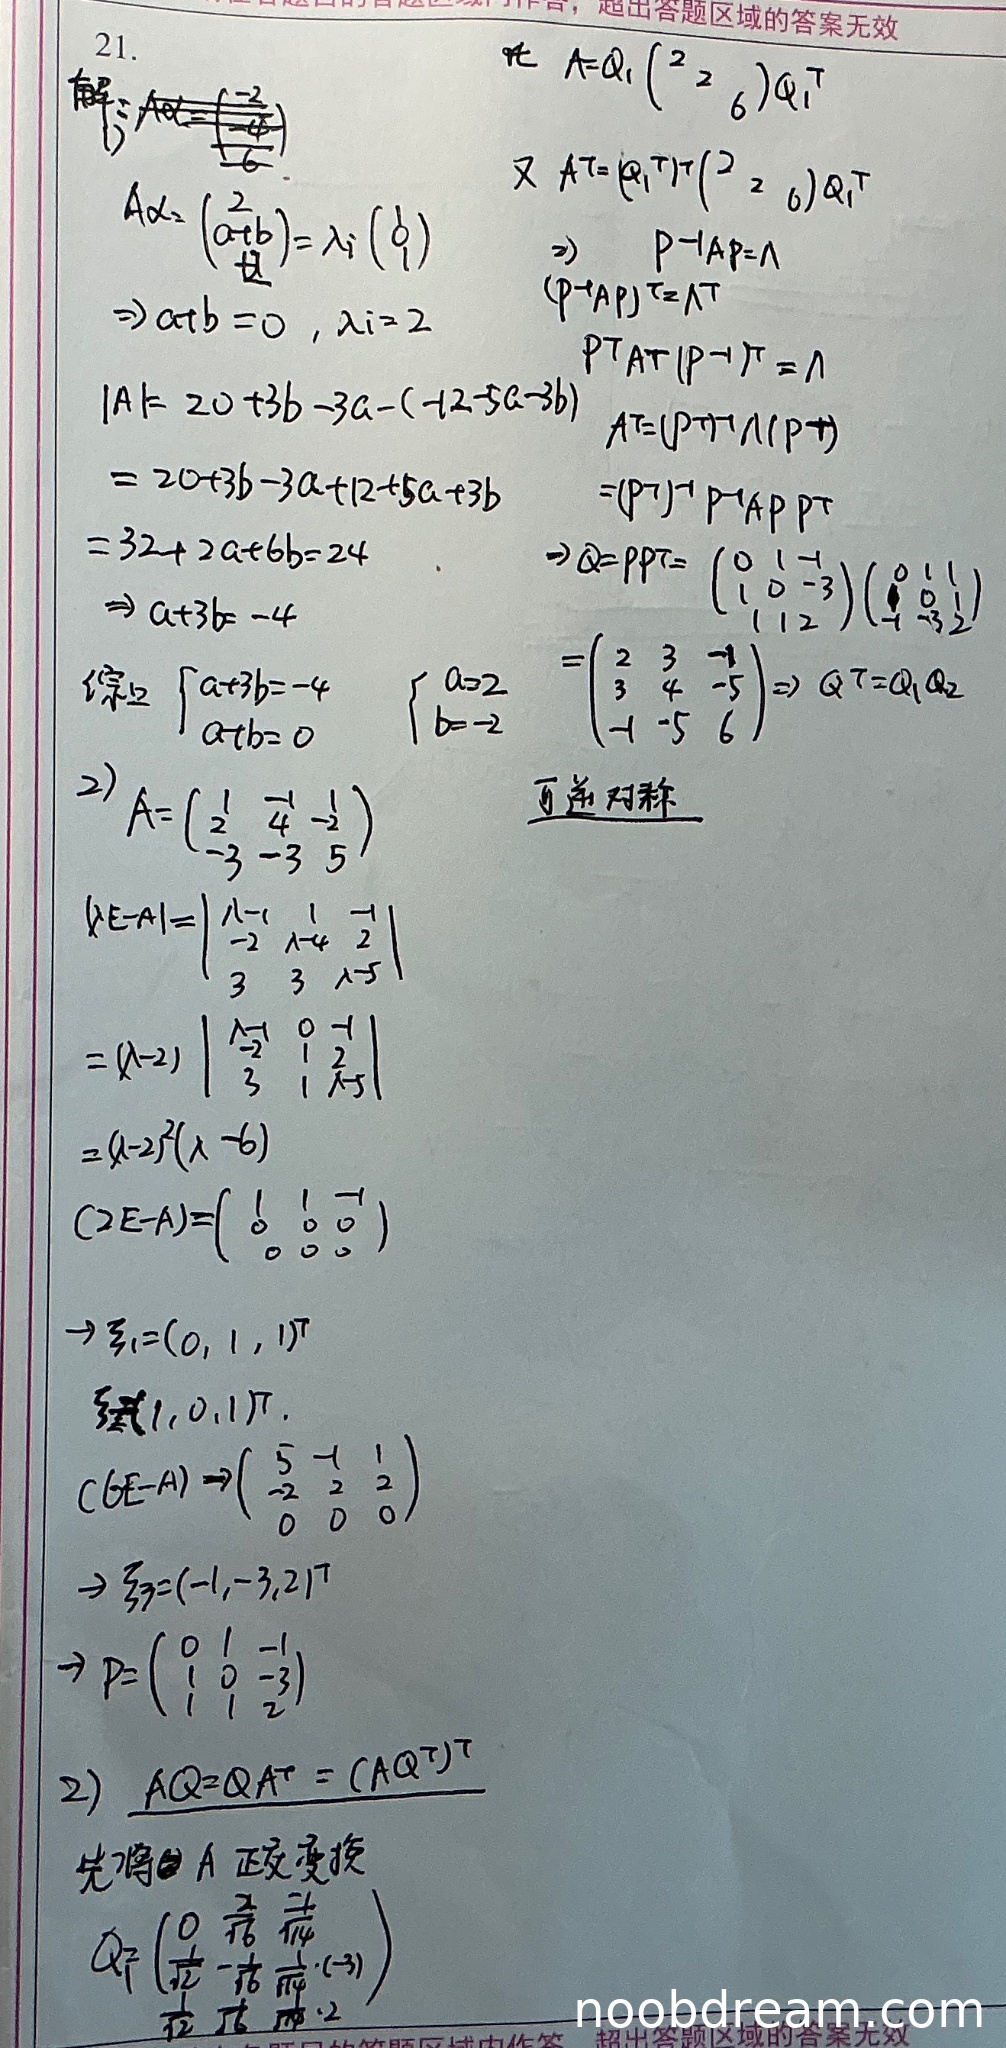 超出答题区域的答案无效
21.
解:
1)
Aα = (2, a+b, ) = λi (1, 0, 1)
⇒ a+b = 0 , λi = 2
|A| = 20+3b-3a-(-12-5a-3b)
= 20+3b-3a+12+5a+3b
= 32+2a+6b = 24
⇒ a+3b = -4
综上 { a+3b = -4
a+b = 0
{ a=2
b=-2
2)
A = ( 1 -1 1
2 4 -2
-3 -3 5 )
|λE-A| = | λ-1 1 -1
-2 λ-4 2
3 3 λ-5 |
= (λ-2) | λ-1 0 -1
-2 1 2
3 1 λ-5 |
= (λ-2)²(λ-6)
(2E-A) = ( 1 1 -1
0 0 0
0 0 0 )
→ ξ1 = (0, 1, 1)T
(1, 0, 1)T.
(6E-A) → ( 5 -1 1
-2 2 2
0 0 0 )
→ ξ3 = (-1, -3, 2)T
→ P = ( 0 1 -1
1 0 -3
1 1 2 )
2) AQ = QAT = (AQT)T
先将 A 正交变换
Q1 = ( 0 2/√6 -1/√14
1/√2 -1/√6 1/√14·(-3)
1/√2 1/√6 1/√14·2 )
A = Q1 ( 2 2 6 ) Q1T
又 AT = (Q1T)T ( 2 2 6 ) Q1T
⇒ P-1AP = Λ
(P-1AP)T = ΛT
PTAT(P-1)T = Λ
AT = (PT)-1Λ(PT)
= (PT)-1P-1APPT
⇒ Q = PPT = ( 0 1 -1
1 0 -3
1 1 2 ) ( 0 1 1
1 0 1
-1 -3 2 )
= ( 2 3 -1
3 4 -5
-1 -5 6 ) ⇒ QT = Q1Q2
可逆对称
noobdream.com
超出答题区域的答案无效